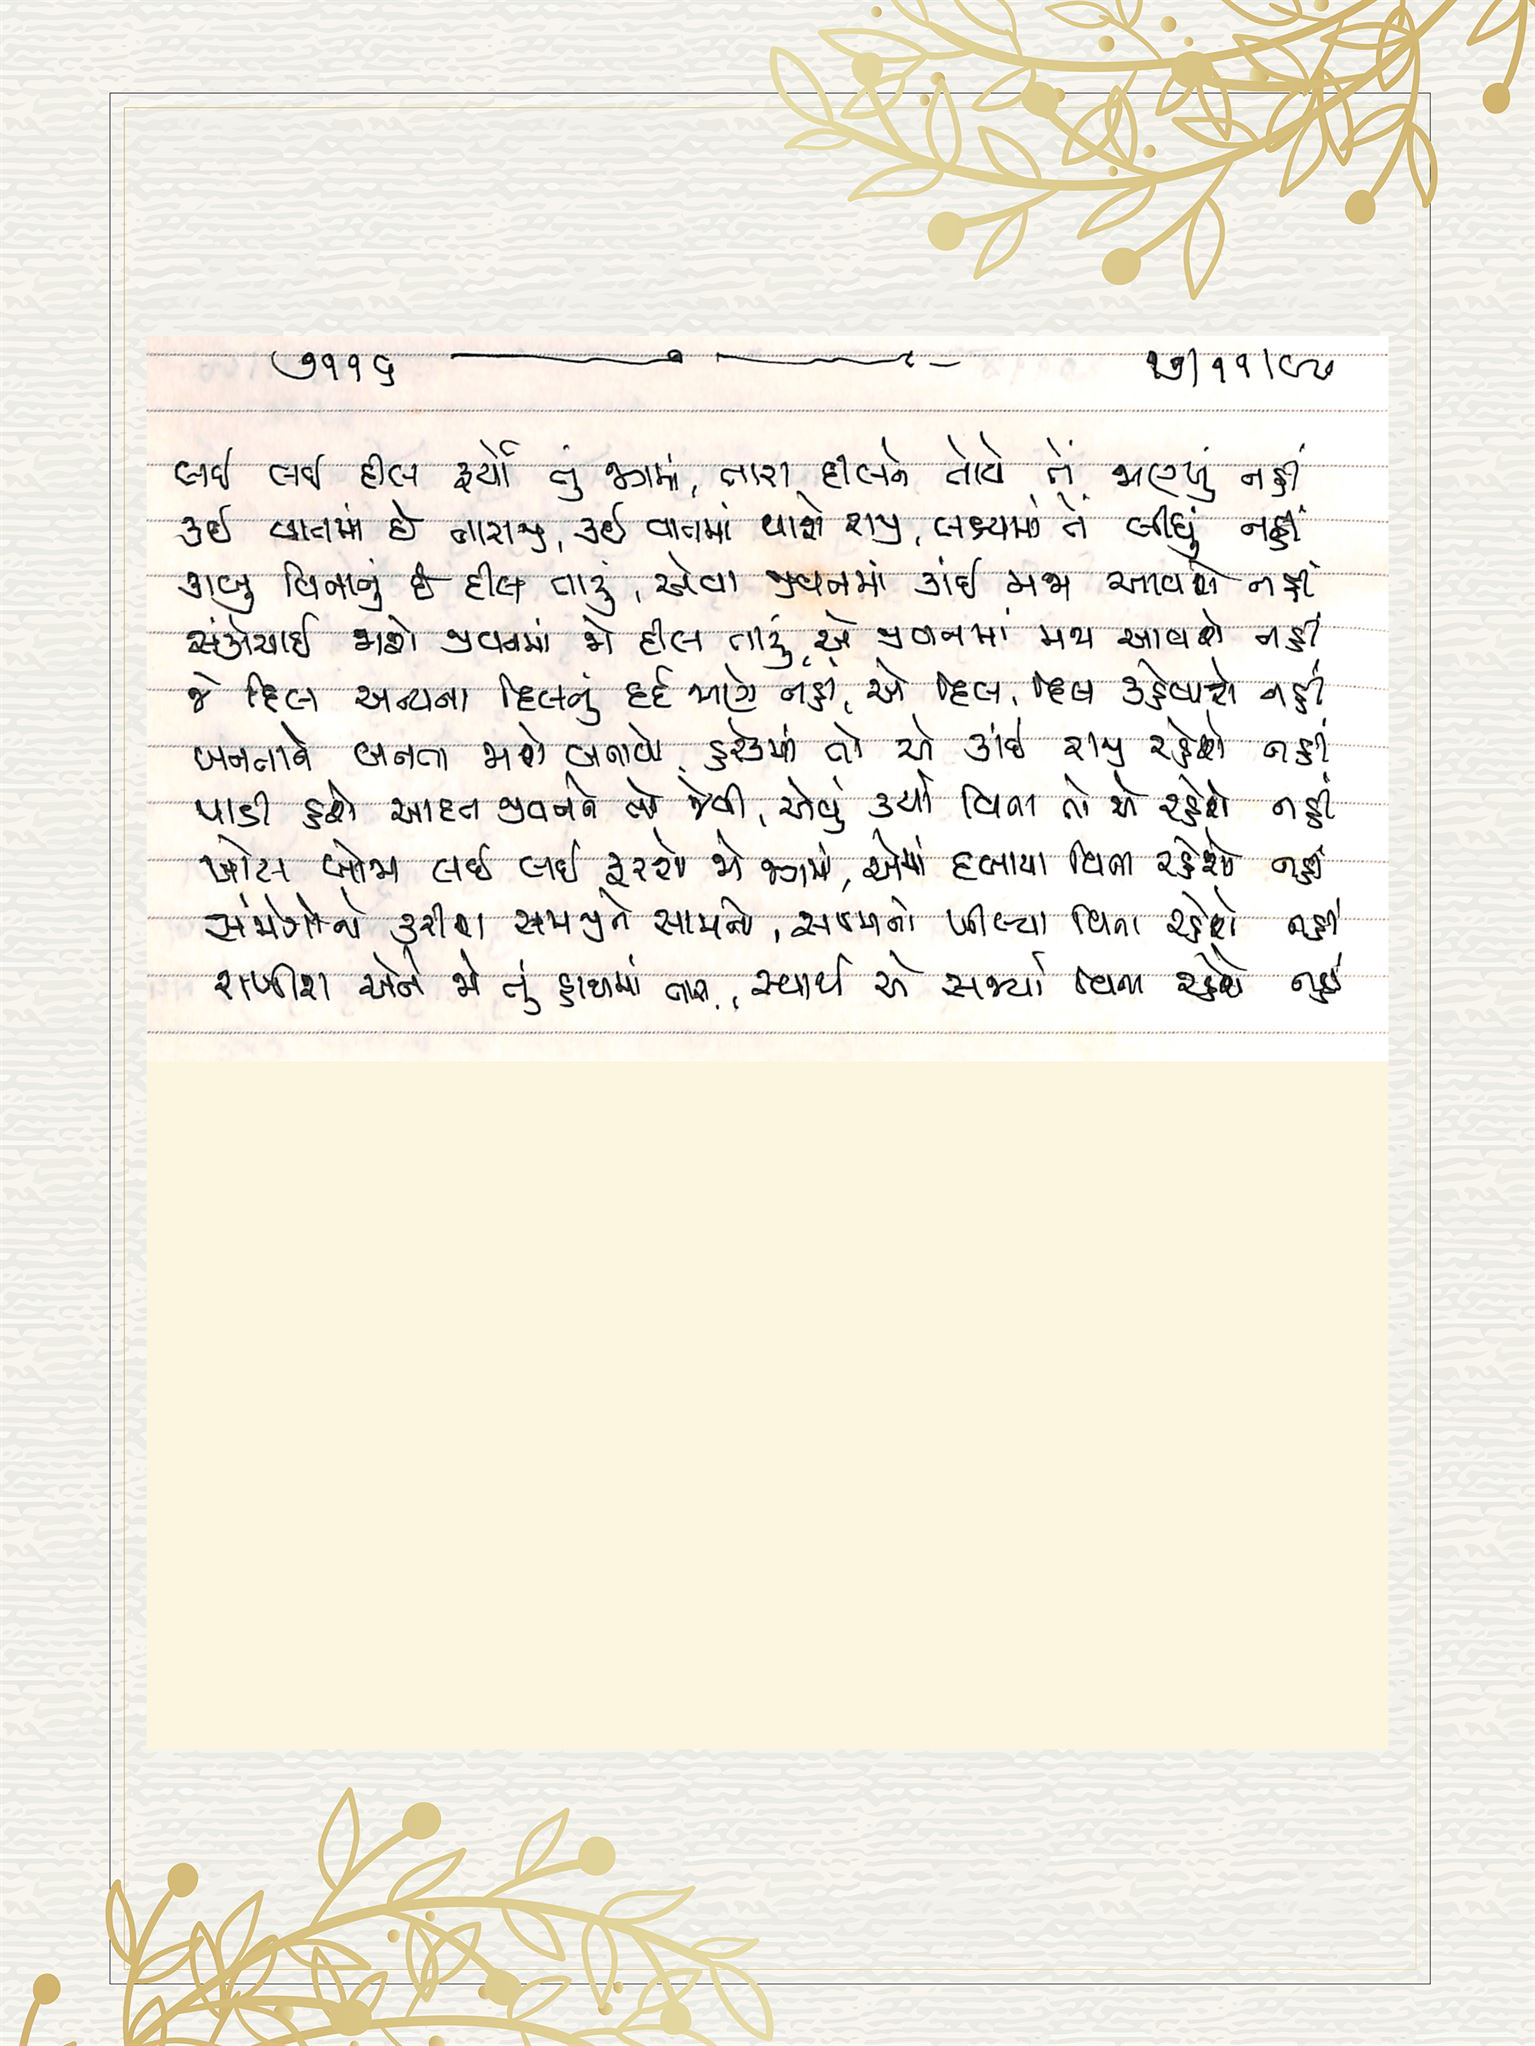 ૭૧૧૬ ૧૭/૧૧/૯૭
લઈ લઈ દીલ ફર્યો તું જગમાં, તારા દીલને તોયે તેં જાણ્યું નહીં
કઈ વાતમાં છે નારાજી, કઈ વાતમાં થાશે રાજી, લક્ષ્યમાં તેં લીધું નહીં
કાબુ વિનાનું છે દીલ તારું, એવા જીવનમાં કાંઈ મજા આવશે નહીં
સંકોચાઈ જાશે જીવનમાં જો દીલ તારું, એ જીવનમાં મઝા આવશે નહીં
જે દિલ અન્યના દિલનું દર્દ જાણે નહીં, એ દિલ, દિલ કહેવાશે નહીં
બનતાને બનતા જાશે બનાવો, હરેકમાં તો એ કાંઈ રાજી રહેશે નહીં
પાડી હશે આદત જીવનને તો જેવી, એવું કર્યા વિના તો એ રહેશે નહીં
ખોટા બોજા લઈ લઈ ફરશે જો જગમાં, એમાં દબાયા વિના રહેશે નહીં
સંજોગોનો કરીશ સમજીને સામનો, સદ્દગુણો ખીલ્યા વિના રહેશે નહીં
રાખીશ એને જો તું હાથમાં તારા, સ્વાર્થ એ સર્જ્યા વિના રહેશે નહીં